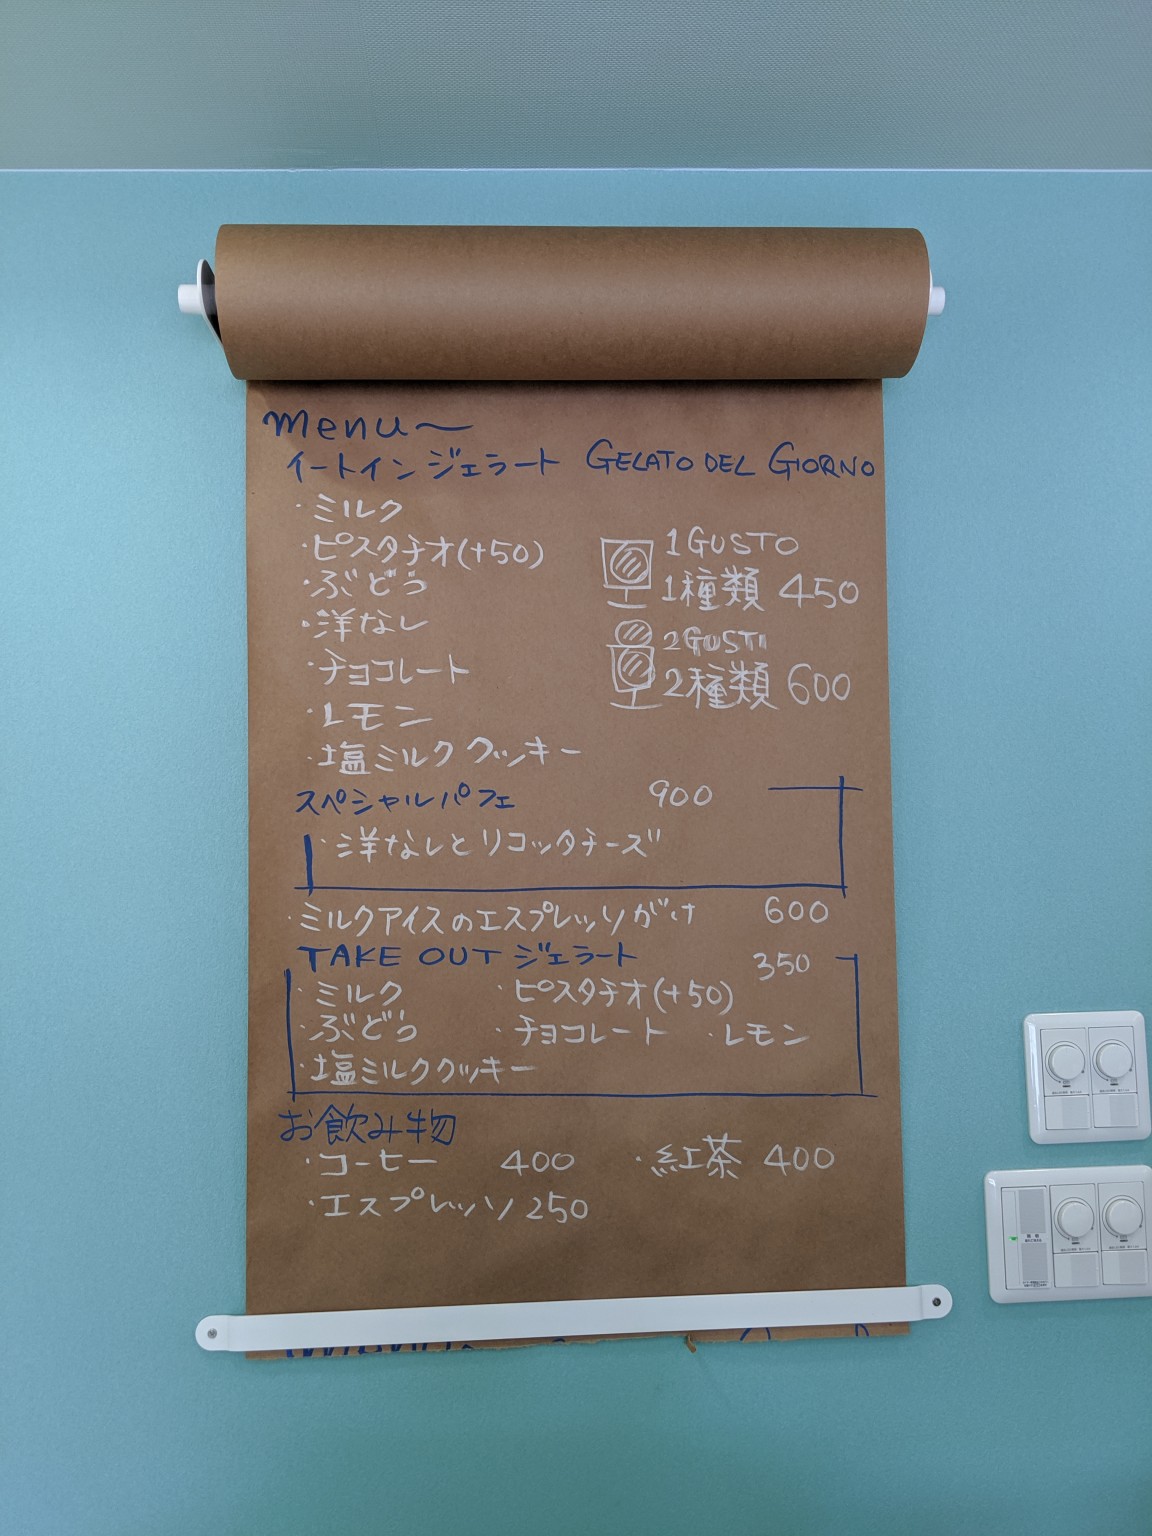 menu～
イートイン ジェラート GELATO DEL GIORNO
・ミルク
・ピスタチオ(+50)
・ぶどう
・洋なし
・チョコレート
・レモン
・塩ミルククッキー
1GUSTO
1種類 450
2GUSTI
2種類 600
スペシャルパフェ 900
・洋なしとリコッタチーズ
・ミルクアイスのエスプレッソがけ 600
TAKE OUT ジェラート 350
・ミルク ・ピスタチオ(+50)
・ぶどう ・チョコレート ・レモン
・塩ミルククッキー
お飲み物
・コーヒー 400 ・紅茶 400
・エスプレッソ 250